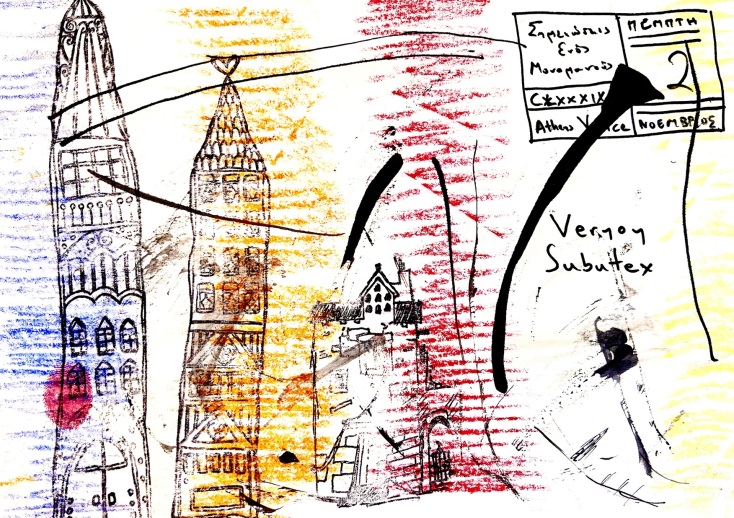 Σημειώσεις
Ενός
Μονομανούς
ΠΕΜΠΤΗ
2
Athens Voice
ΝΟΕΜΒΡΙΟΣ
Vernon
Subutex